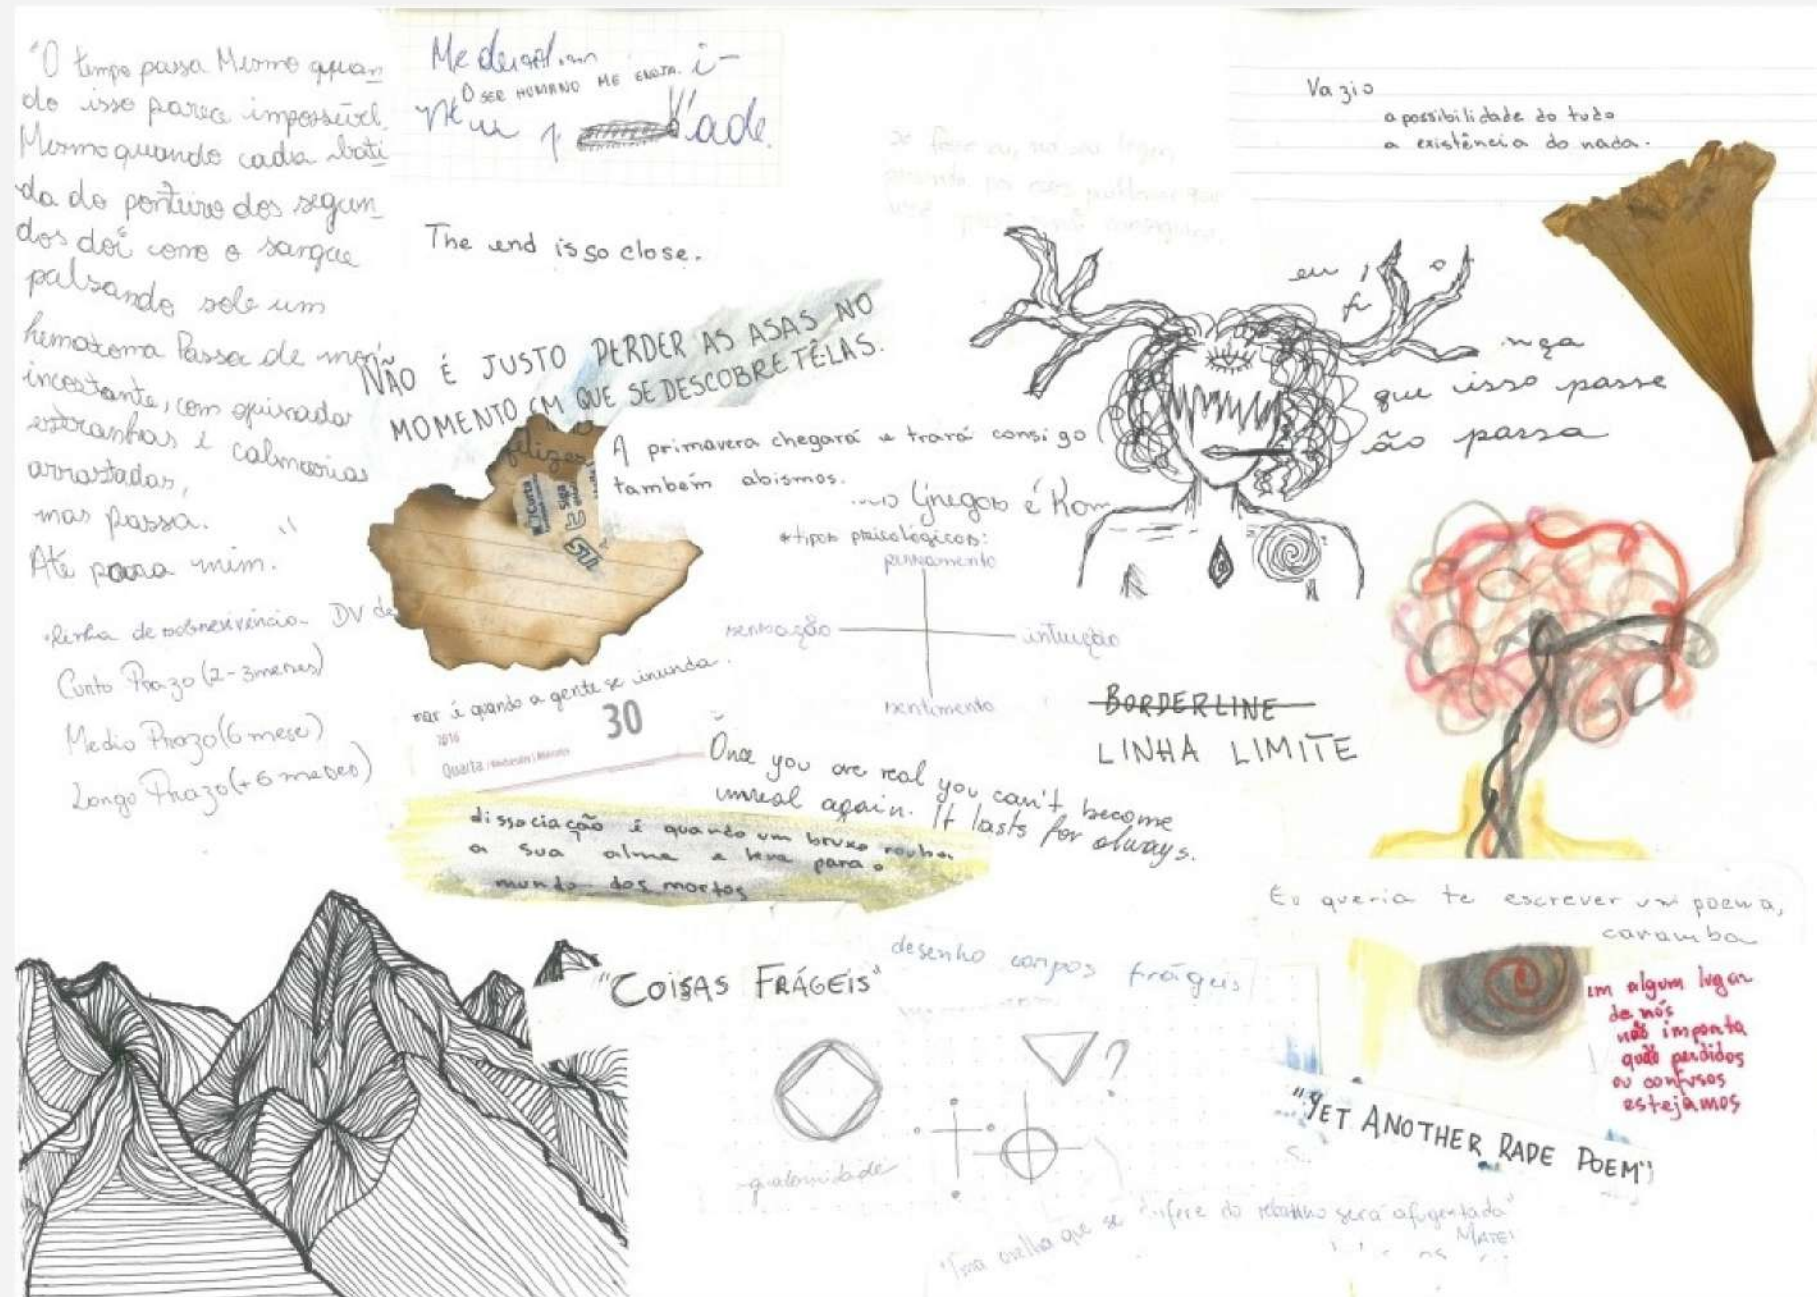 "O tempo passa Mesmo quan
do isso parece impossível.
Mesmo quando cada bati
da do ponteiro dos segun
dos doi como o sangue
pulsando sob um
hematoma Passa de modo
incostante, com guinadas
estranhas e calmarias
arrastadas,
mas passa. "
Até para mim.
linha de sobrevivência DV de
Curto Prazo (2-3 meses)
Medio Prazo (6 mese)
Longo Prazo (+6 meses)
O SER HUMANO ME ENOJA. i-
ade.
The end is so close.
NÃO É JUSTO PERDER AS ASAS NO
MOMENTO EM QUE SE DESCOBRE TÊ-LAS.
felizes
Curta
Siga
A primavera chegará e trará consigo
também abismos.
Gregos é Rom
*tipos psicológicos:
pensamento
sensação
intuição
sentimento
mar é quando a gente se inunda.
2016
30
Quarta
Once you are real you can't become
unreal again. It lasts for always.
dissociação é quando um bruxo rouba
a sua alma e leva para o
mundo dos mortos
Vazio
a possibilidade do todo
a existência do nada.
se fosse eu, no seu lugar,
eu
fi
nga
que isso passe
ão passa
BORDERLINE
LINHA LIMITE
Eu queria te escrever um poema,
caramba
em algum lugar
de nós
não importa
quão perdidos
ou confusos
estejamos
"YET ANOTHER RAPE POEM"
"COISAS FRÁGEIS"
desenho corpos frágeis
?
quaternidade
"Uma ovelha que se difere do rebanho será afugentada"